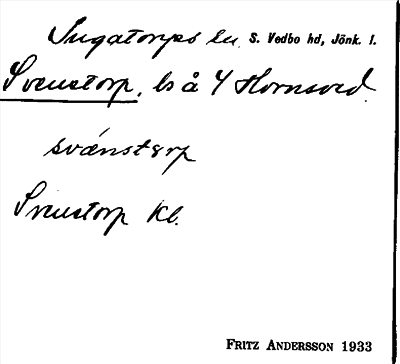 Ingatorps sn S. Vedbo hd, Jönk. l.
Svenstorp, ls å Y Hornsved.
svänstorp
Svenstorp Kl.
FRITZ ANDERSSON 1933